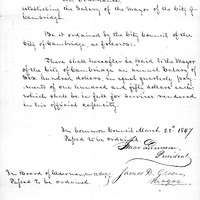 establishing the Salary of the Mayor of the City of
Cambridge.
Be it ordained by the City Council of the
City of Cambridge as follows:
There shall hereafter be paid to the Mayor
of the City of Cambridge an annual Salary of
Six hundred dollars, in equal quarterly pay-
ments of one hundred and fifty dollars each,
which shall be in full for services rendered
in his official capacity.
In Common Council March 22d 1847
Passed to be ordained.
Isaac Livermore
President
In Board of Aldermen
Passed to be ordained
James D. Green
Mayor